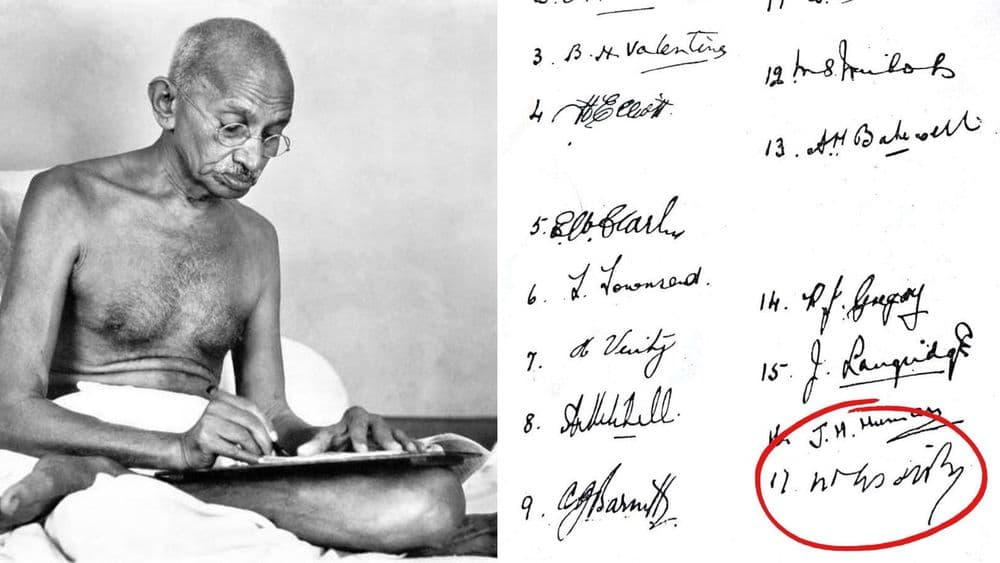 3. B. H. Valentine
4 H Elliott
5. E W. Clark
6. L. Townsend.
7. H Verity
8. A Mitchell.
9. C J Barnett
12 M.S. Nichols
13. A H Bakewell
14. R J. Gregory
15. J. Langridge
16 J. H. Human
17 mkgandhi